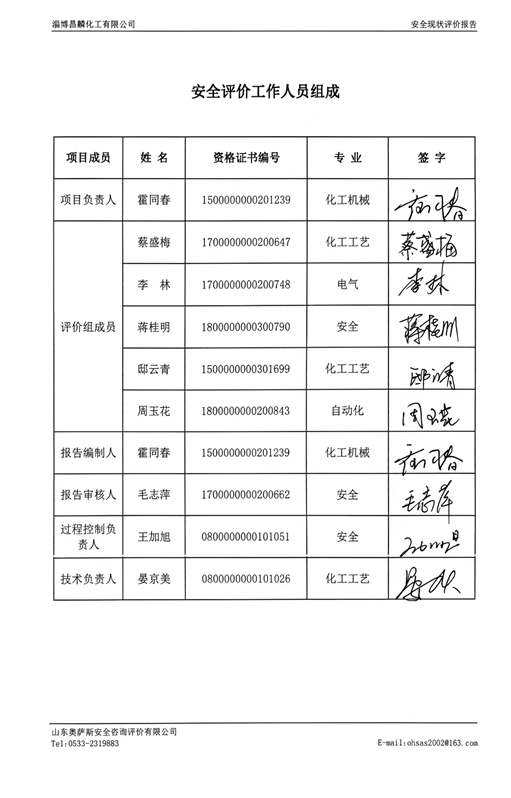 淄博昌麟化工有限公司 安全现状评价报告
安全评价工作人员组成
项目成员 姓 名 资格证书编号 专 业 签 字
项目负责人 霍同春 1500000000201239 化工机械
评价组成员 蔡盛梅 1700000000200647 化工工艺 蔡盛梅
李 林 1700000000200748 电气 李林
蒋桂明 1800000000300790 安全 蒋桂明
邸云青 1500000000301699 化工工艺 邸云青
周玉花 1800000000200843 自动化 周玉花
报告编制人 霍同春 1500000000201239 化工机械
报告审核人 毛志萍 1700000000200662 安全 毛志萍
过程控制负
责人 王加旭 0800000000101051 安全
技术负责人 晏京美 0800000000101026 化工工艺
山东奥萨斯安全咨询评价有限公司
Tel:0533-2319883 E-mail:ohsas2002@163.com